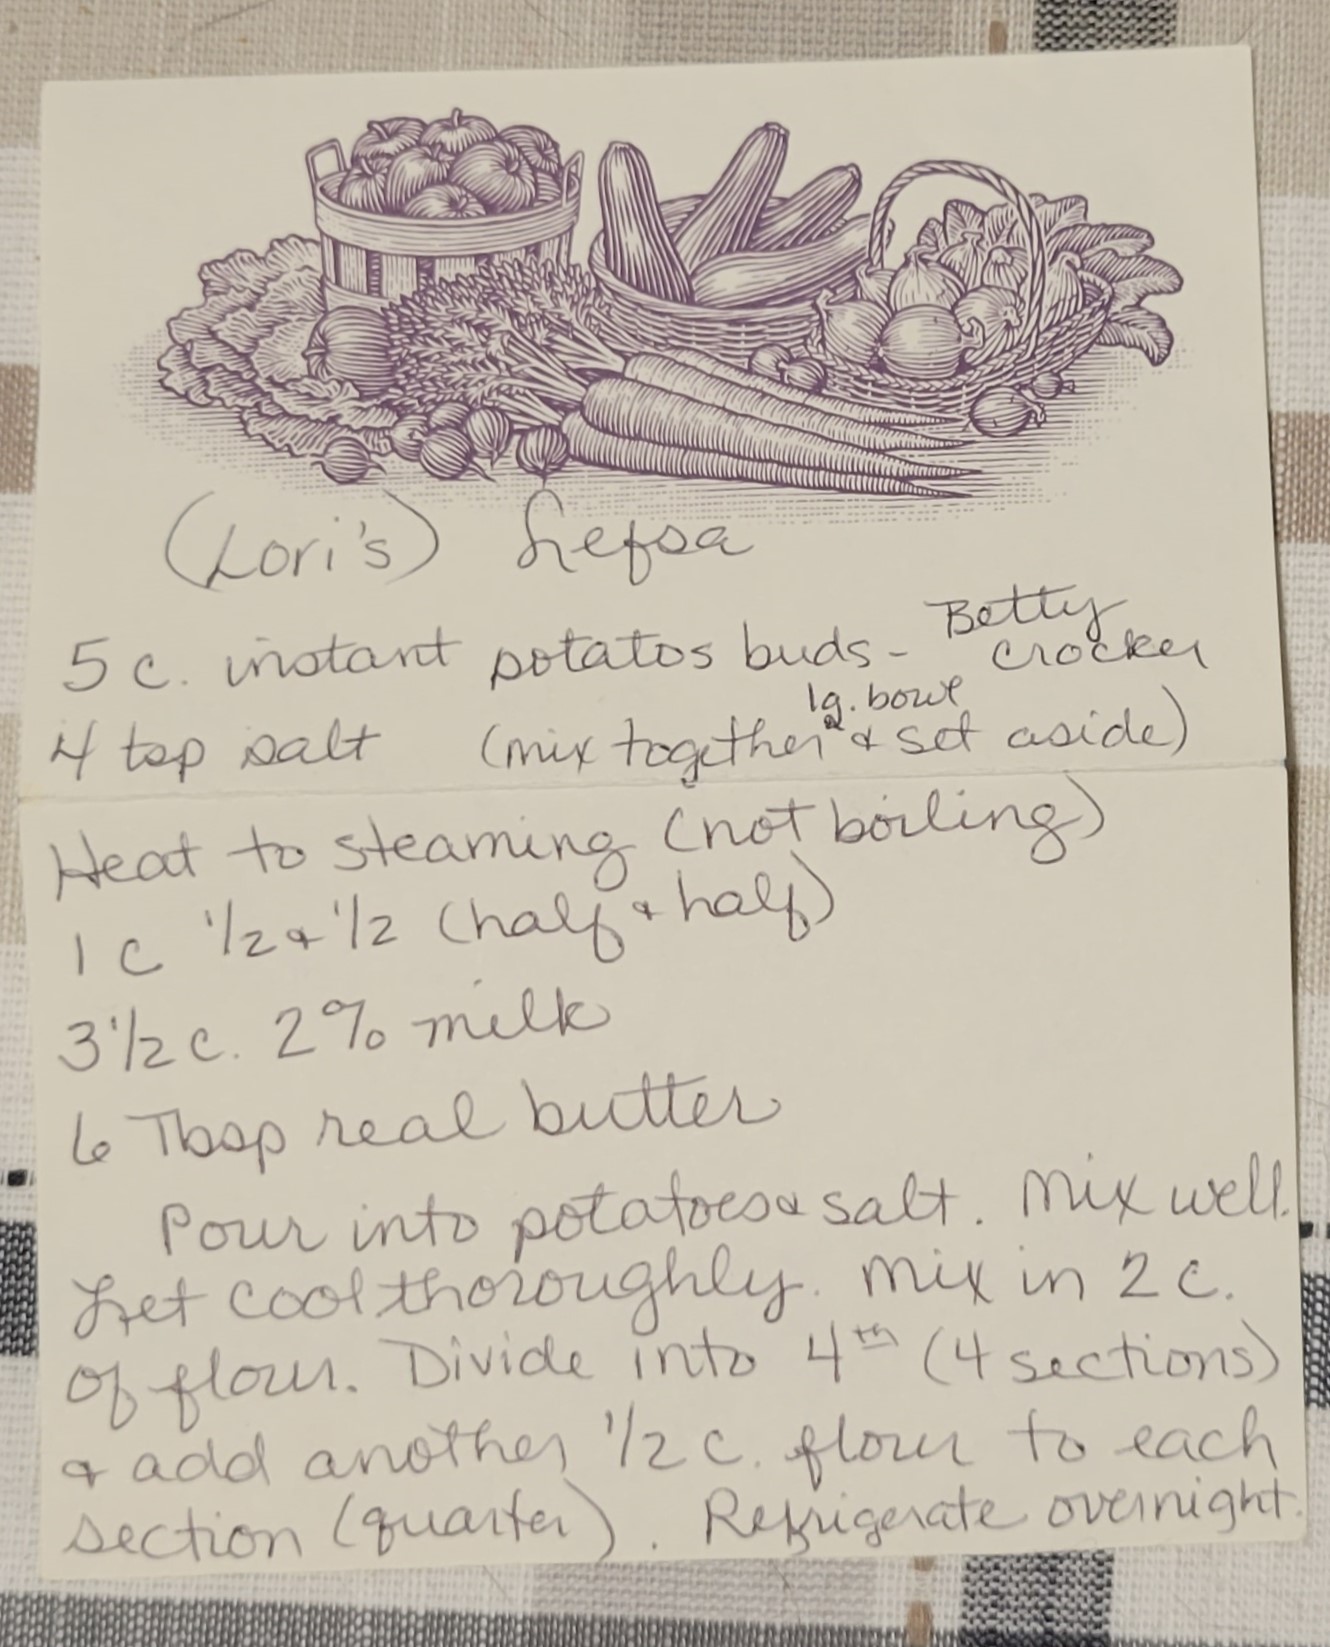 (Lori's) Lefsa
5 c. instant potatos buds - Betty Crocker
4 tsp salt (mix together lg. bowl & set aside)
Heat to steaming (not boiling)
1 c 1/2 & 1/2 (half & half)
3 1/2 c. 2% milk
6 Tbsp real butter
Pour into potatoes & salt. Mix well.
Let cool thoroughly. Mix in 2 c.
of flour. Divide into 4th (4 sections)
& add another 1/2 c. flour to each
section (quarter). Refrigerate overnight.